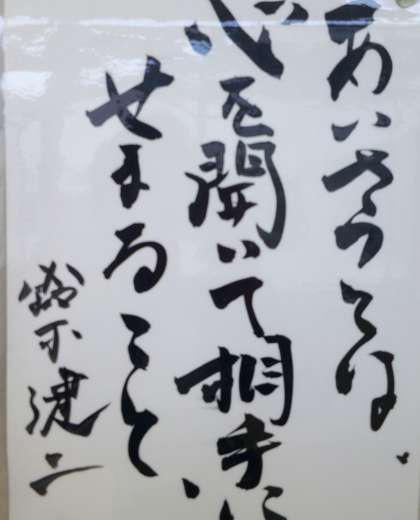 あいさつとは、
心を開いて相手に
せまること
鈴木健二